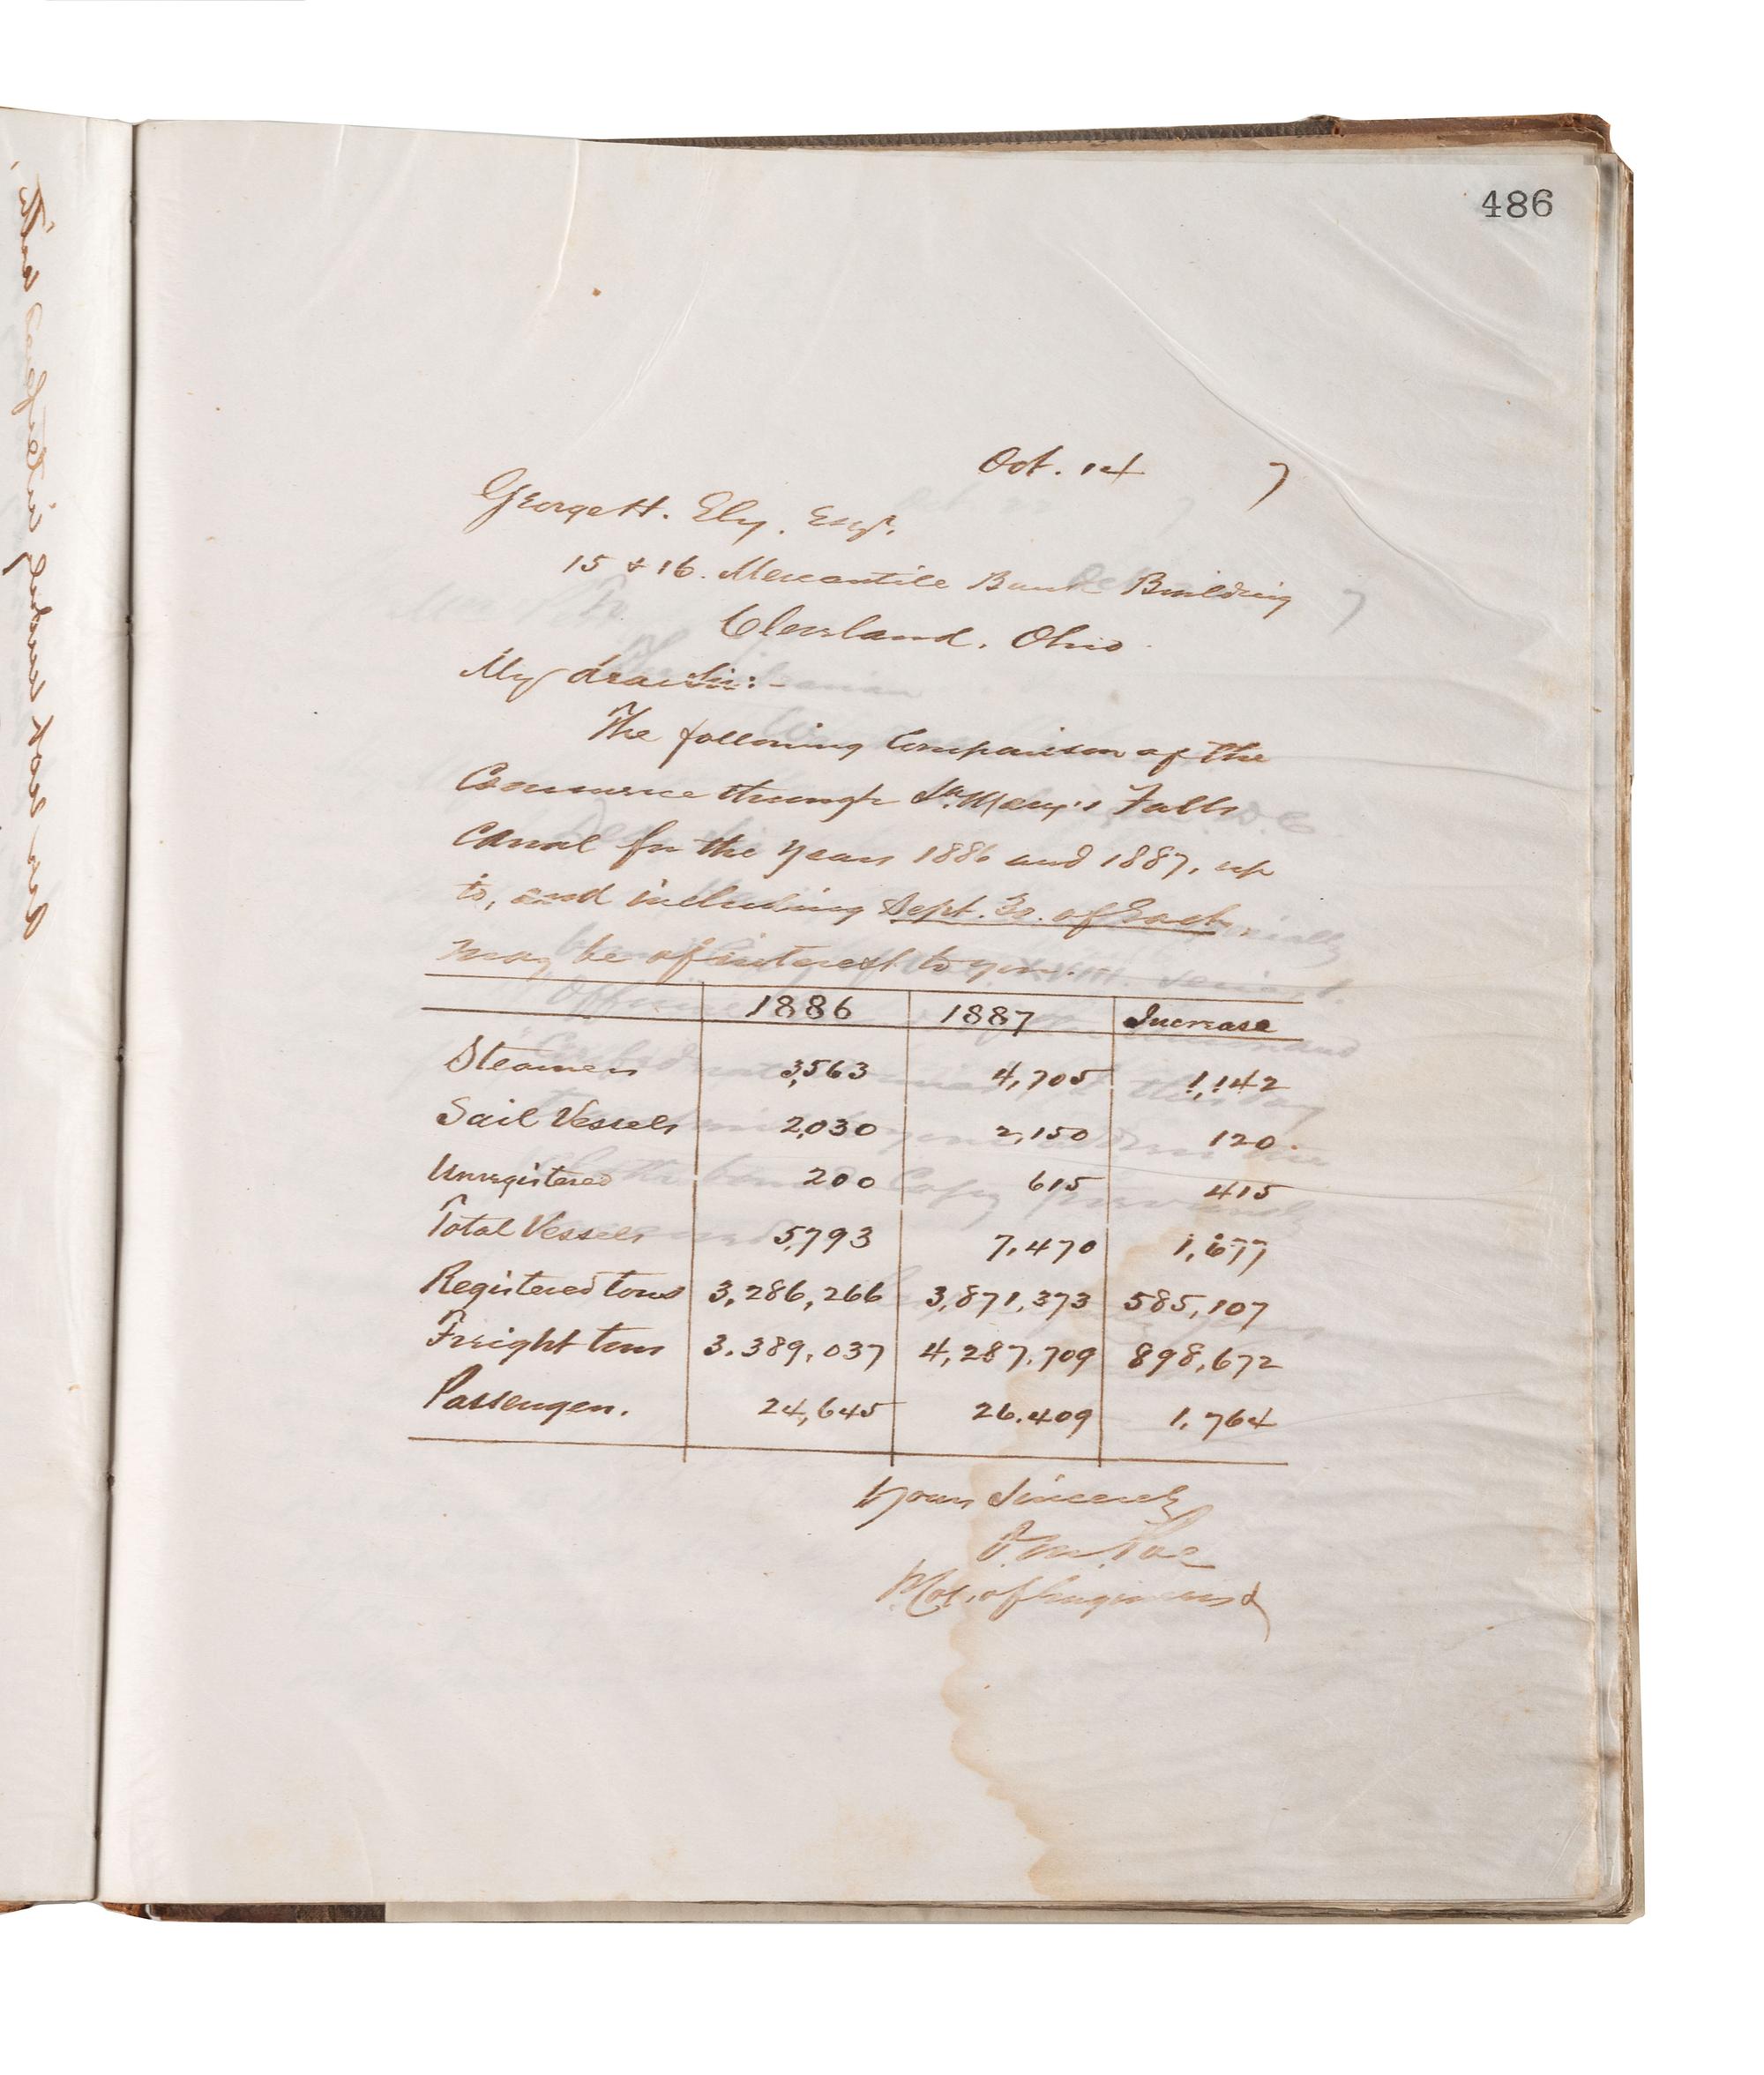 486
Oct. 14 7
George H. Ely, Esqr.
15 & 16. Mercantile Bank Building
Cleveland, Ohio
My dear Sir:-
The following Comparison of the
Commerce through St. Mary's Falls
Canal for the years 1886 and 1887, up
to, and including Sept. 30. of Each,
may be of interest to you.
1886 1887 Increase
Steamers 3,563 4,705 1,142
Sail Vessels 2,030 2,150 120
Unregistered 200 615 415
Total Vessels 5,793 7,470 1,677
Registered tons 3,286,266 3,871,373 585,107
Freight tons 3.389,037 4,287,709 898,672
Passengers. 24,645 26.409 1,764
Yours Sincerely
O.M. Poe
of Engineers